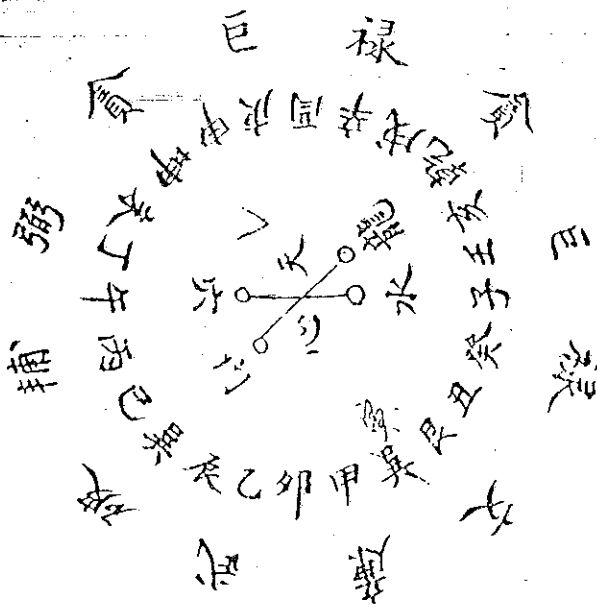 巨 禄 貪 巨 禄 文 廉 武 破 輔 弼 貪
壬 子 癸 丑 艮 甲 卯 乙 辰 巽 巳 丙 午 丁 未 坤 申 庚 酉 辛 戌 乾 亥
天
龍
水